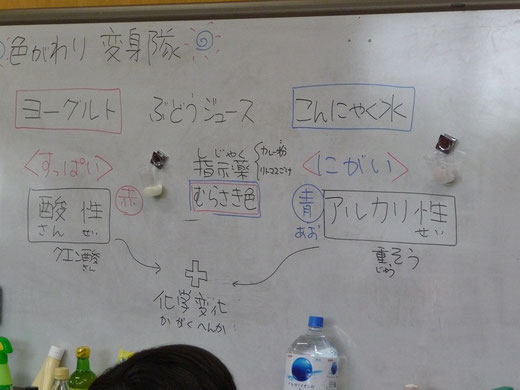 色がわり 変身隊
ヨーグルト ぶどうジュース こんにゃく水
<すっぱい> しじゃく <にがい>
指示薬 カレー粉
むらさき色
酸性 赤 青 アルカリ性
さん せい あお せい
クエン酸 重そう
さん じゅう
化学変化
かがくへんか